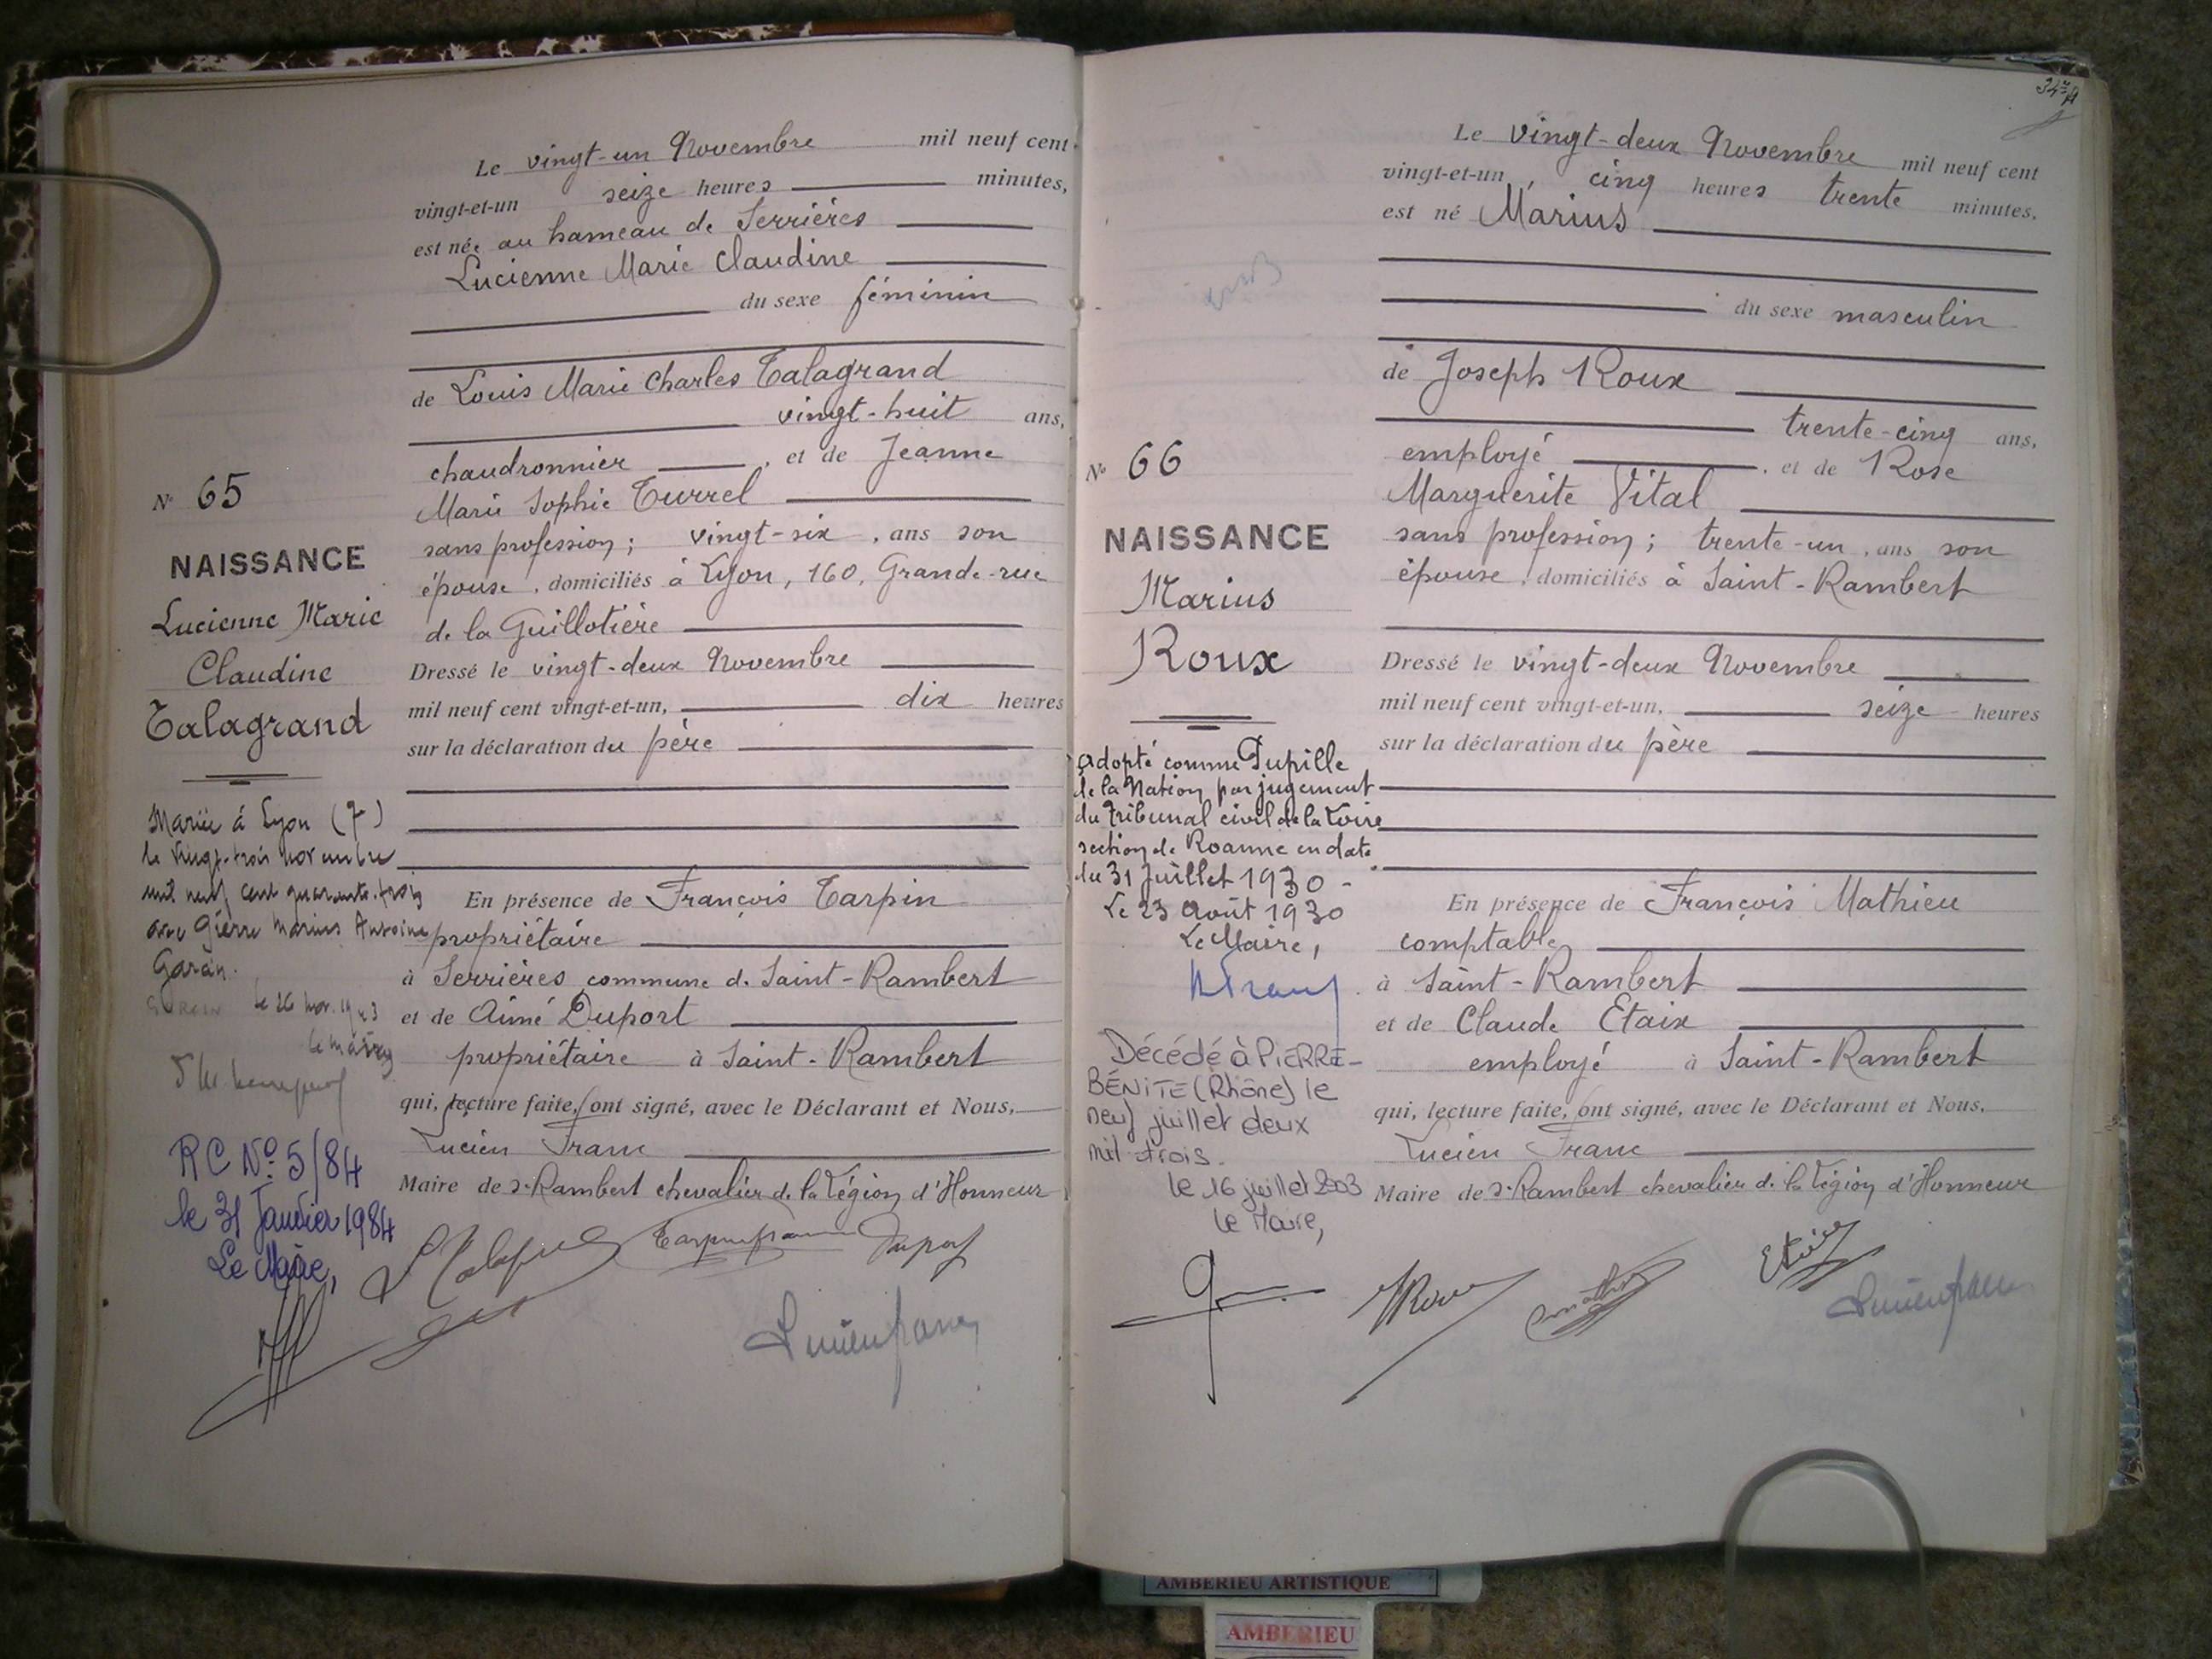 Le vingt-un Novembre mil neuf cent
vingt-et-un seize heures minutes,
est née au hameau de Serrières
Lucienne Marie Claudine
du sexe féminin
de Louis Marie Charles Talagrand
vingt-huit ans,
chaudronnier, et de Jeanne
Marie Sophie Turrel
sans profession; vingt-six, ans son
épouse, domiciliés à Lyon, 160, Grande-rue
de la Guillotière
Dressé le vingt-deux Novembre
mil neuf cent vingt-et-un, dix heures
sur la déclaration du père
En présence de François Tarpin
propriétaire
à Serrières commune de Saint-Rambert
et de Aimé Duport
propriétaire à Saint-Rambert
qui, lecture faite, ont signé, avec le Déclarant et Nous,
Lucien Franc
Maire de St-Rambert chevalier de la Légion d'Honneur
N° 65
NAISSANCE
Lucienne Marie
Claudine
Talagrand
Mariée à Lyon (7)
le vingt-trois novembre
mil neuf cent quarante-trois
avec Pierre Marius Antoine
Garin.
le 26 nov. 1943
le maire
RC N° 5/84
le 31 Janvier 1984
Le Maire,
Duport
Lucien Franc
347
Le vingt-deux Novembre mil neuf cent
vingt-et-un, cinq heures trente minutes,
est né Marius
du sexe masculin
de Joseph Roux
trente-cinq ans,
employé, et de Rose
Marguerite Vital
sans profession; trente-un, ans son
épouse, domiciliés à Saint-Rambert
Dressé le vingt-deux Novembre
mil neuf cent vingt-et-un, seize heures
sur la déclaration du père
En présence de François Mathieu
comptable
à Saint-Rambert
et de Claude Etaix
employé à Saint-Rambert
qui, lecture faite, ont signé, avec le Déclarant et Nous,
Lucien Franc
Maire de St-Rambert chevalier de la Légion d'Honneur
N° 66
NAISSANCE
Marius
Roux
Adopté comme Pupille
de la Nation par jugement
du Tribunal civil de la Loire
section de Roanne en date
du 31 Juillet 1930 -
Le 23 Août 1930
Le Maire,
Décédé à PIERRE-
BÉNITE (Rhône) le
neuf juillet deux
mil trois.
le 16 juillet 2003
Le Maire,
Roux
Lucien Franc
AMBERIEU ARTISTIQUE
AMBERIEU